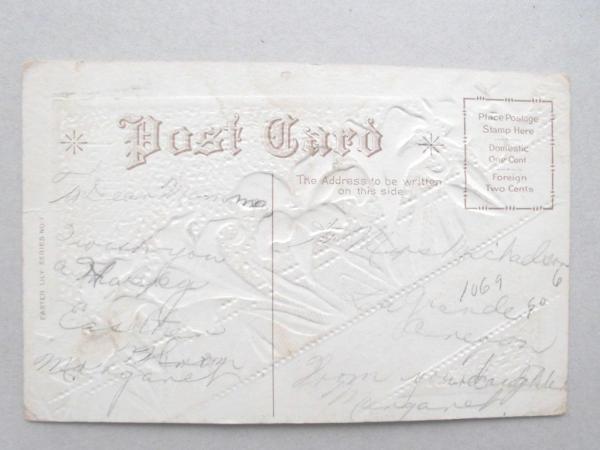 Post Card
Place Postage
Stamp Here
Domestic
One Cent
Foreign
Two Cents
The Address to be written
on this side.
EASTER LILY SERIES NO. 
To Dear
I wish you
a Happy
Easter
From
Margaret
Mrs
1069
From your daughter
Margaret